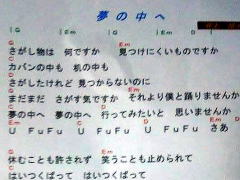 夢の中へ
|G |Em |G
G Em
さがし物は 何ですか 見つけにくいものですか
C G D
カバンの中も 机の中も
さがしたけれど 見つからないのに
まだまだ さがす気ですか それより僕と踊りませんか
夢の中へ 夢の中へ 行ってみたいと 思いませんか
U FuFu U FuFu U FuFu さあ
休むことも許されず 笑うことも止められて
はいつくばって はいつくばって